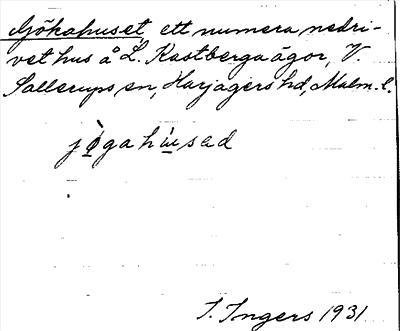 Gjökahuset, ett numera nedri-
vet hus å L. Kastberga ägor, V.
Sallerups sn, Harjagers hd, Malm. l.
jø̀gahúsəd
I. Ingers 1931